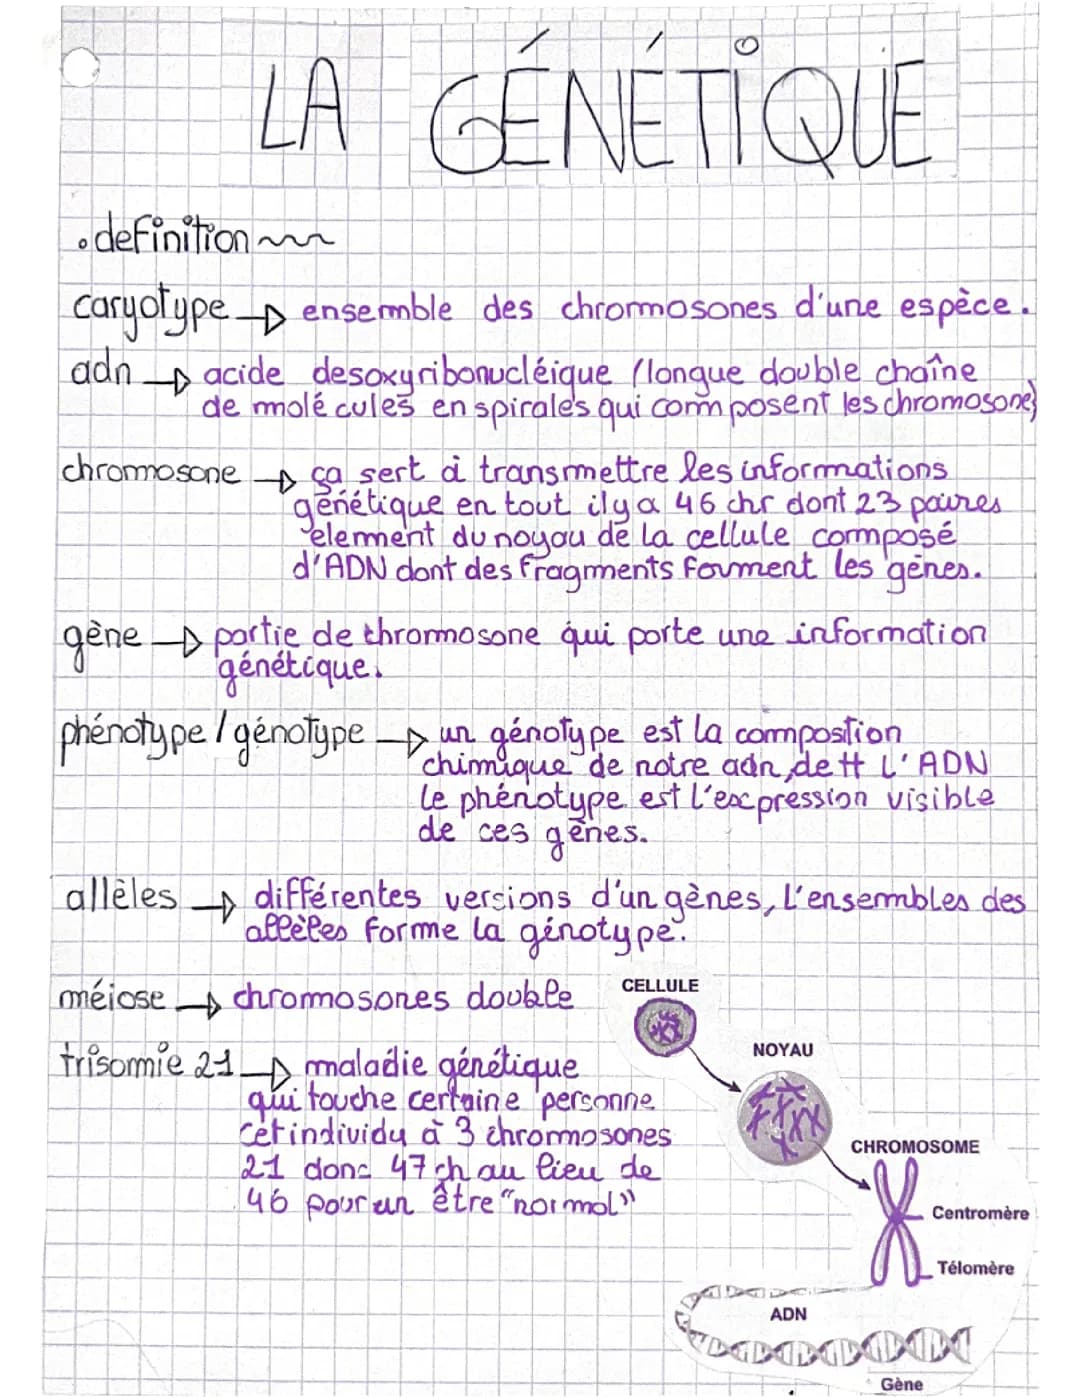 LA GÉNÉTIQUE
• definition
caryotype → ensemble des chromosones d'une espèce.
adn → acide desoxyribonucléique (longue double chaîne
de molécules en spirales qui composent les chromosone)
chromosone → ça sert à transmettre les informations
génétique en tout il y a 46 chr dont 23 paires
element du noyau de la cellule composé
d'ADN dont des fragments forment les gènes.
gène → partie de chromosone qui porte une information
génétique.
phénotype / génotype → un génotype est la compostion
chimique de notre adn, de tt L'ADN
Le phénotype est l'expression visible
de ces gènes.
allèles → différentes versions d'un gènes, L'ensembles des
allèles forme la génotype.
méiose → chromosones double
CELLULE
NOYAU
trisomie 21 → maladie génétique
qui touche certaine personne
cet individu à 3 chromosones
21 donc 47 ch au lieu de
46 pour un être "normal"
CHROMOSOME
Centromère
Télomère
ADN
Gène